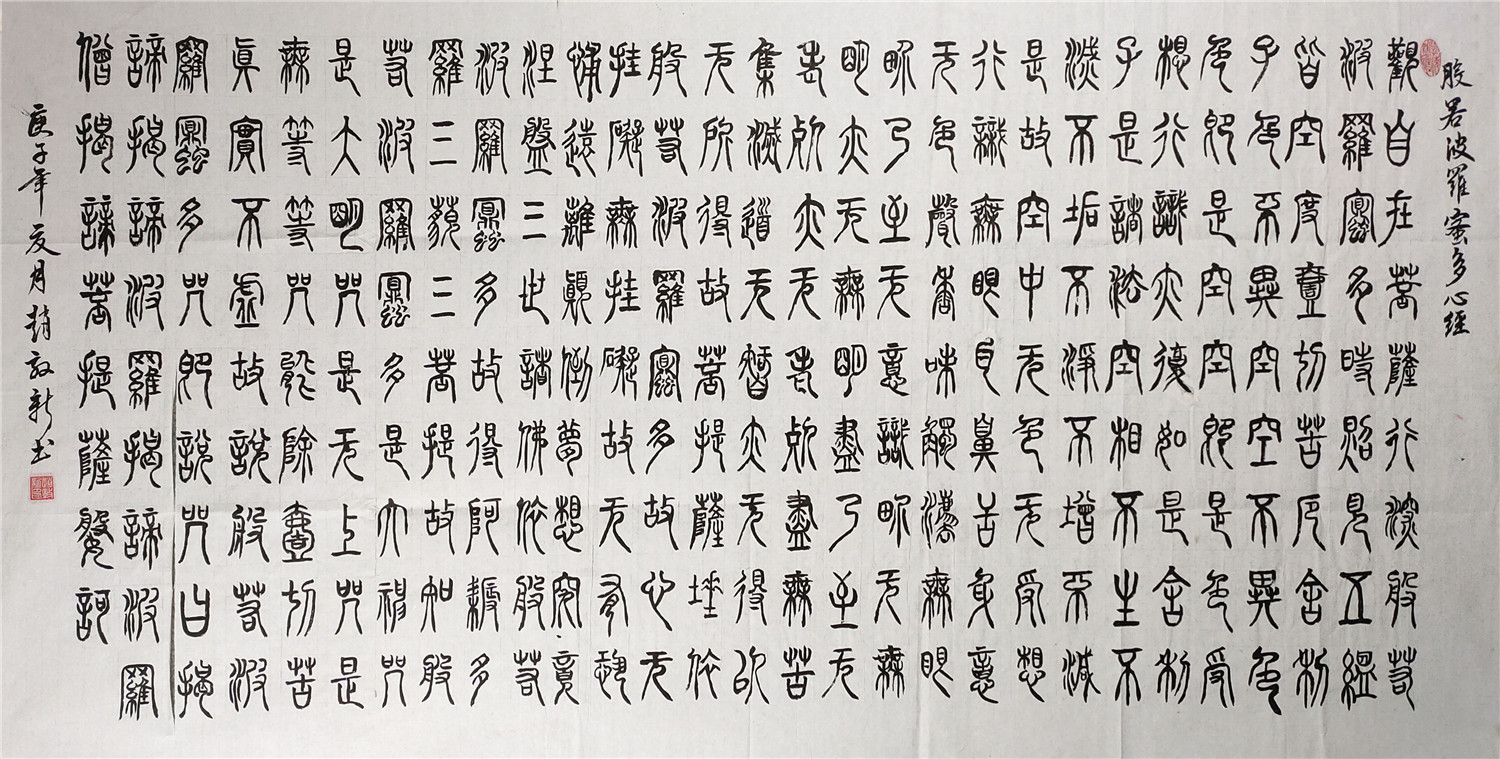 般若波羅蜜多心經
觀自在菩薩行深般若
波羅蜜多時照見五蘊
皆空度壹切苦厄舍利
子色不異空空不異色
色即是空空即是色受
想行識亦復如是舍利
子是諸法空相不生不
滅不垢不淨不增不減
是故空中无色无受想
行識無眼耳鼻舌身意
无色聲香味觸法無眼
界乃至无意識界无無
明亦无無明盡乃至无
老死亦无老死盡無苦
集滅道无智亦无得以
无所得故菩提薩埵依
般若波羅蜜多故心无
挂礙無挂礙故无有恐
怖遠離顛倒夢想究竟
涅盤三世諸佛依般若
波羅蜜多故得阿耨多
羅三藐三菩提故知般
若波羅蜜多是大神咒
是大明咒是无上咒是
無等等咒能除壹切苦
真實不虛故說般若波
羅蜜多咒即說咒曰揭
諦揭諦波羅揭諦波羅
僧揭諦菩提薩婆訶
庚子年夏月趙敬新书